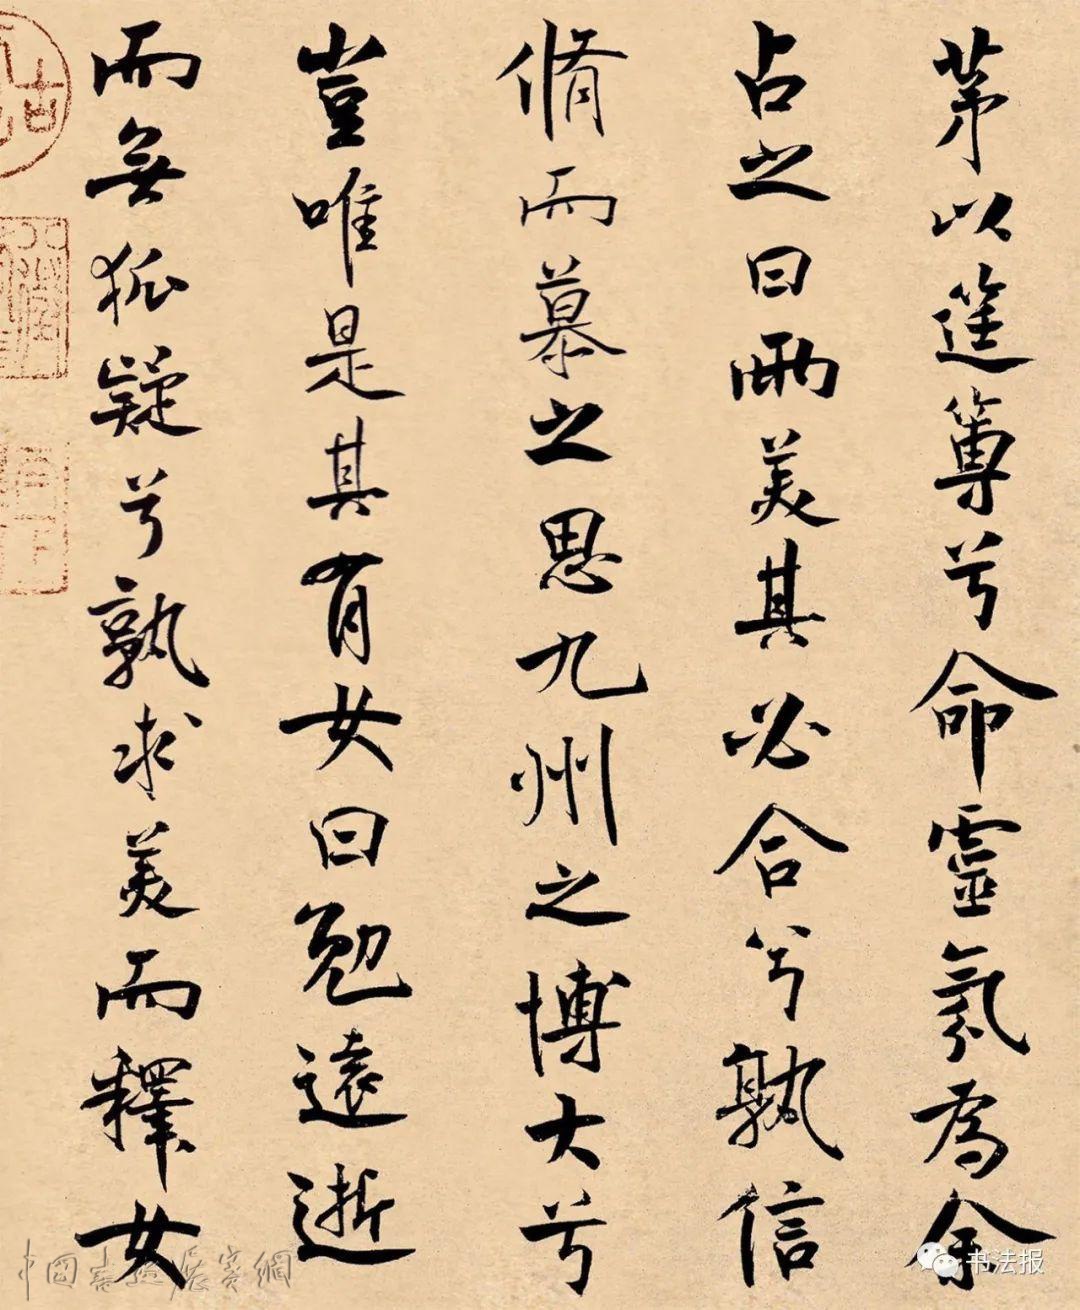 茅以筳篿兮命靈氛為余
占之曰兩美其必合兮孰信
脩而慕之思九州之博大兮
豈唯是其有女曰勉遠逝
而無狐疑兮孰求美而釋女
中国书法展赛网
书法报